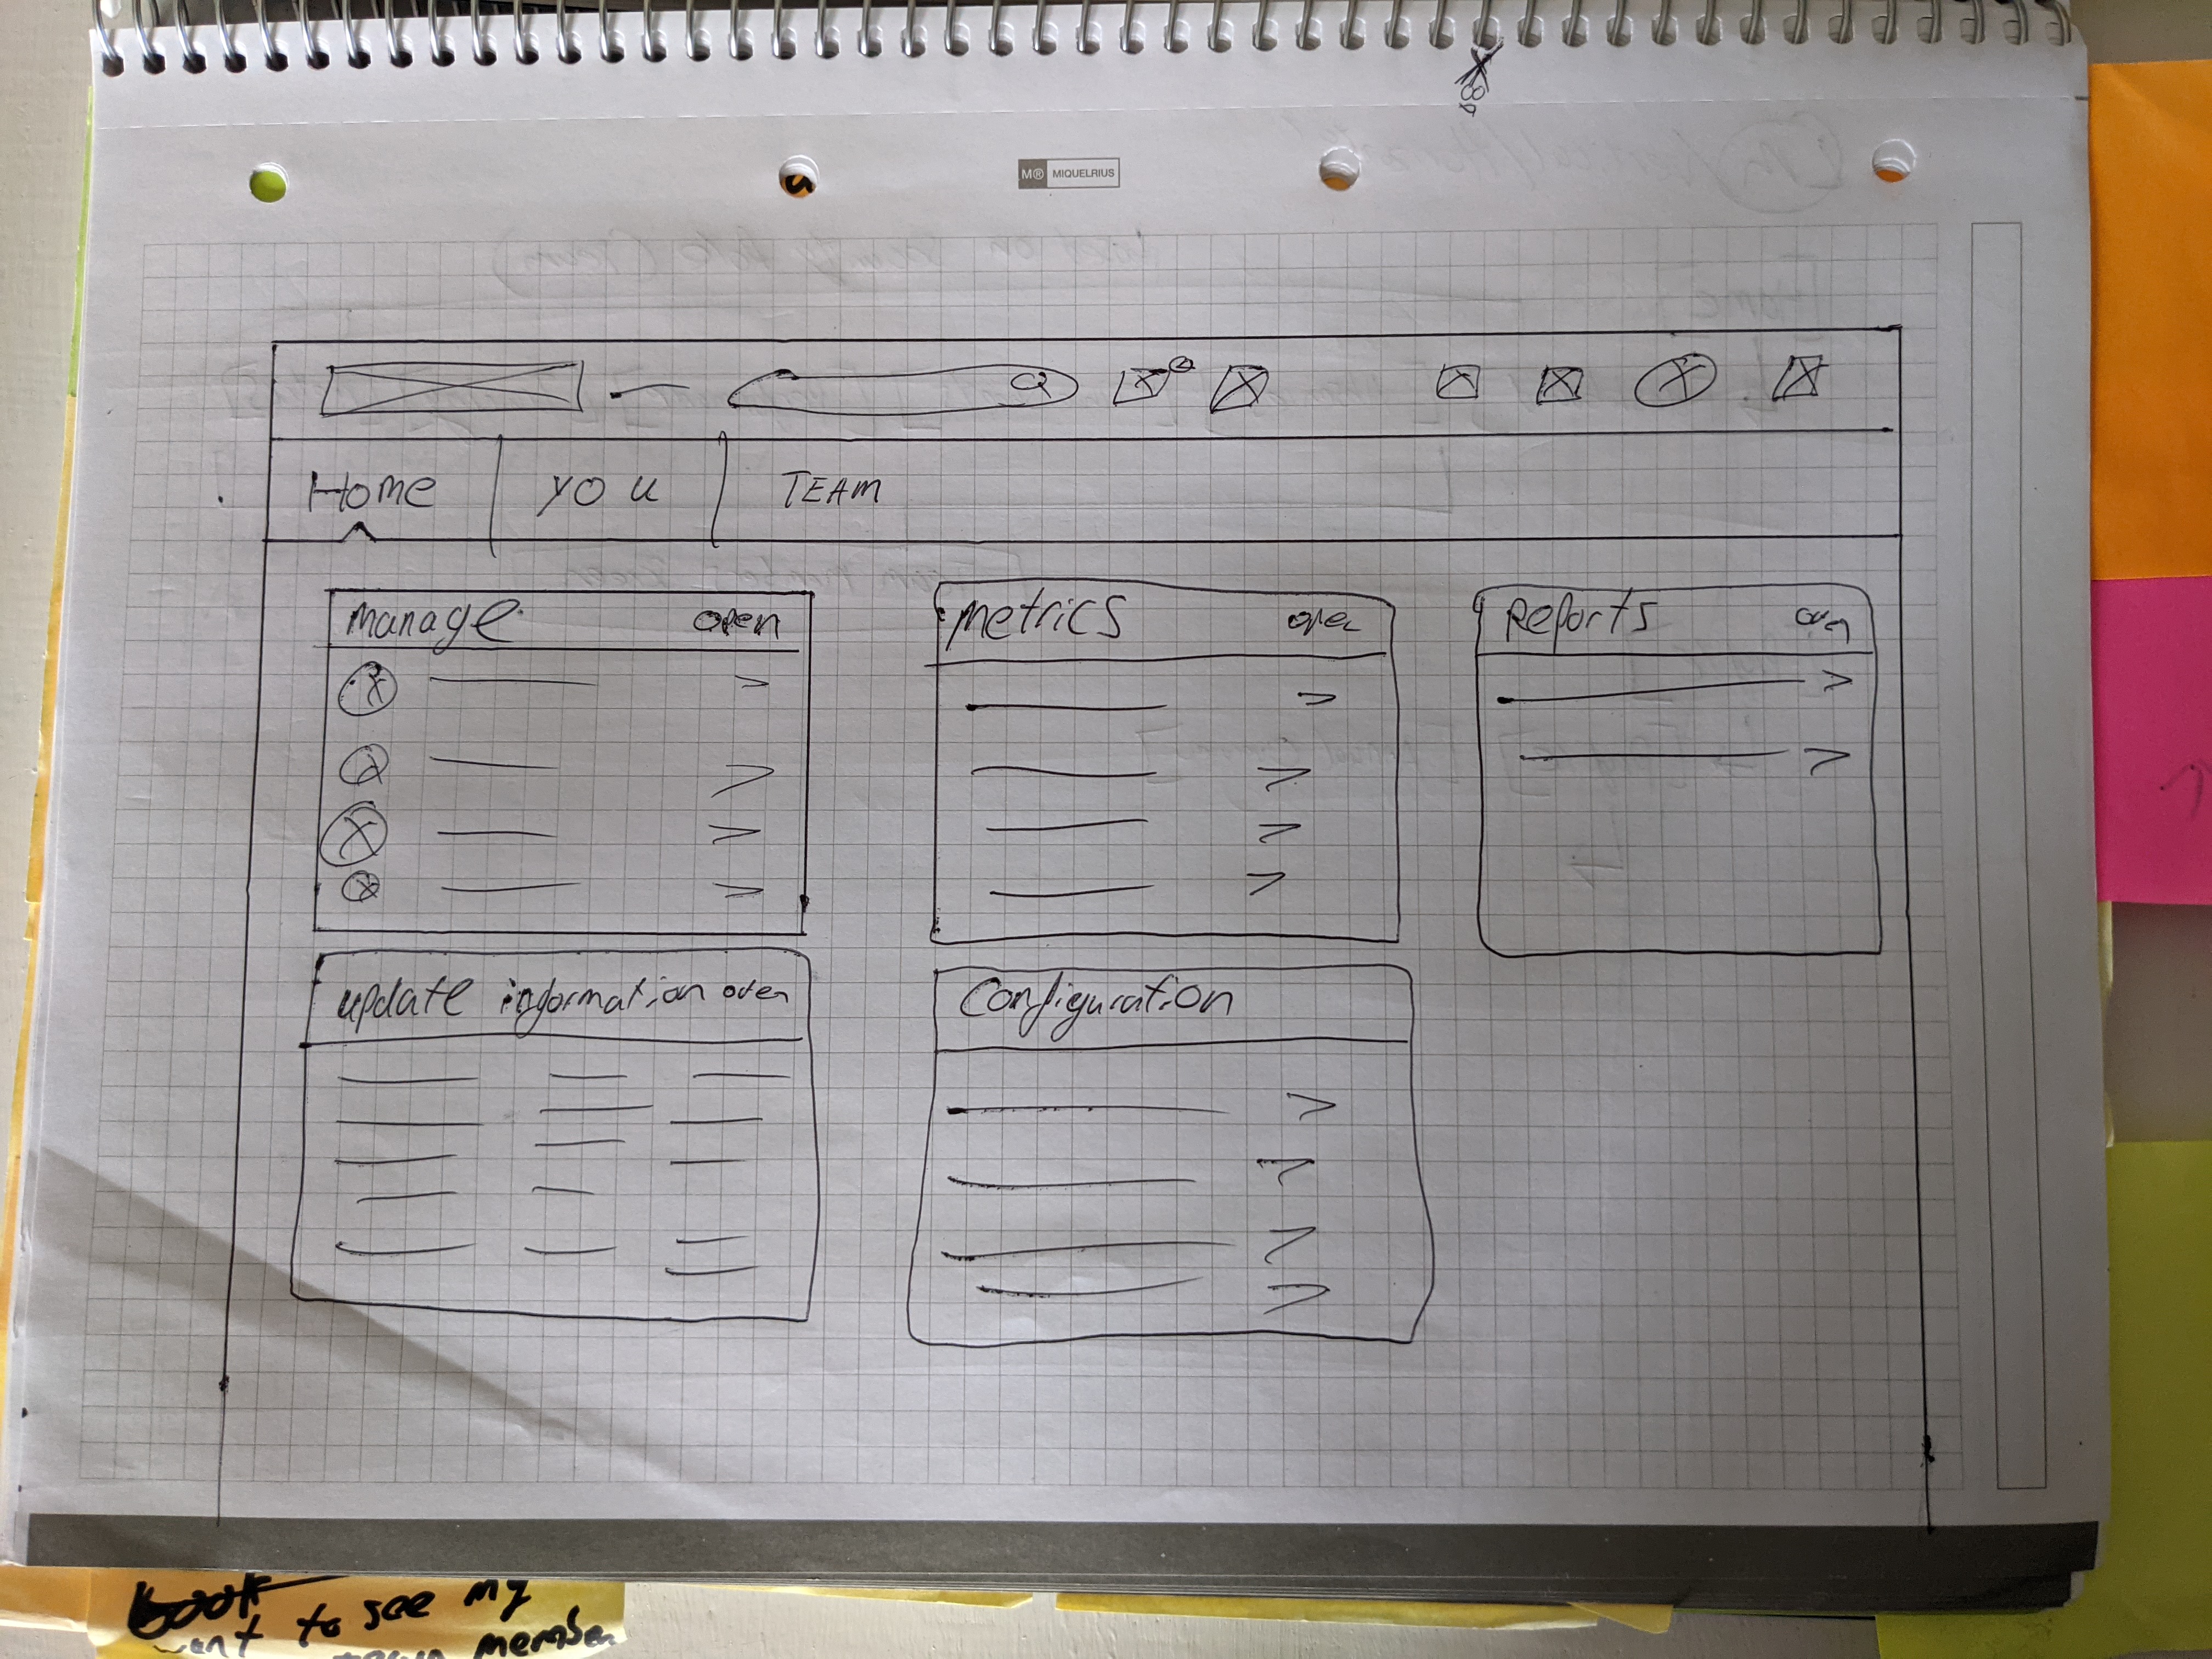 M® MIQUELRIUS
Home YOU TEAM
manage open
metrics open
Reports open
update information open
Configuration
book
want to see my
team member